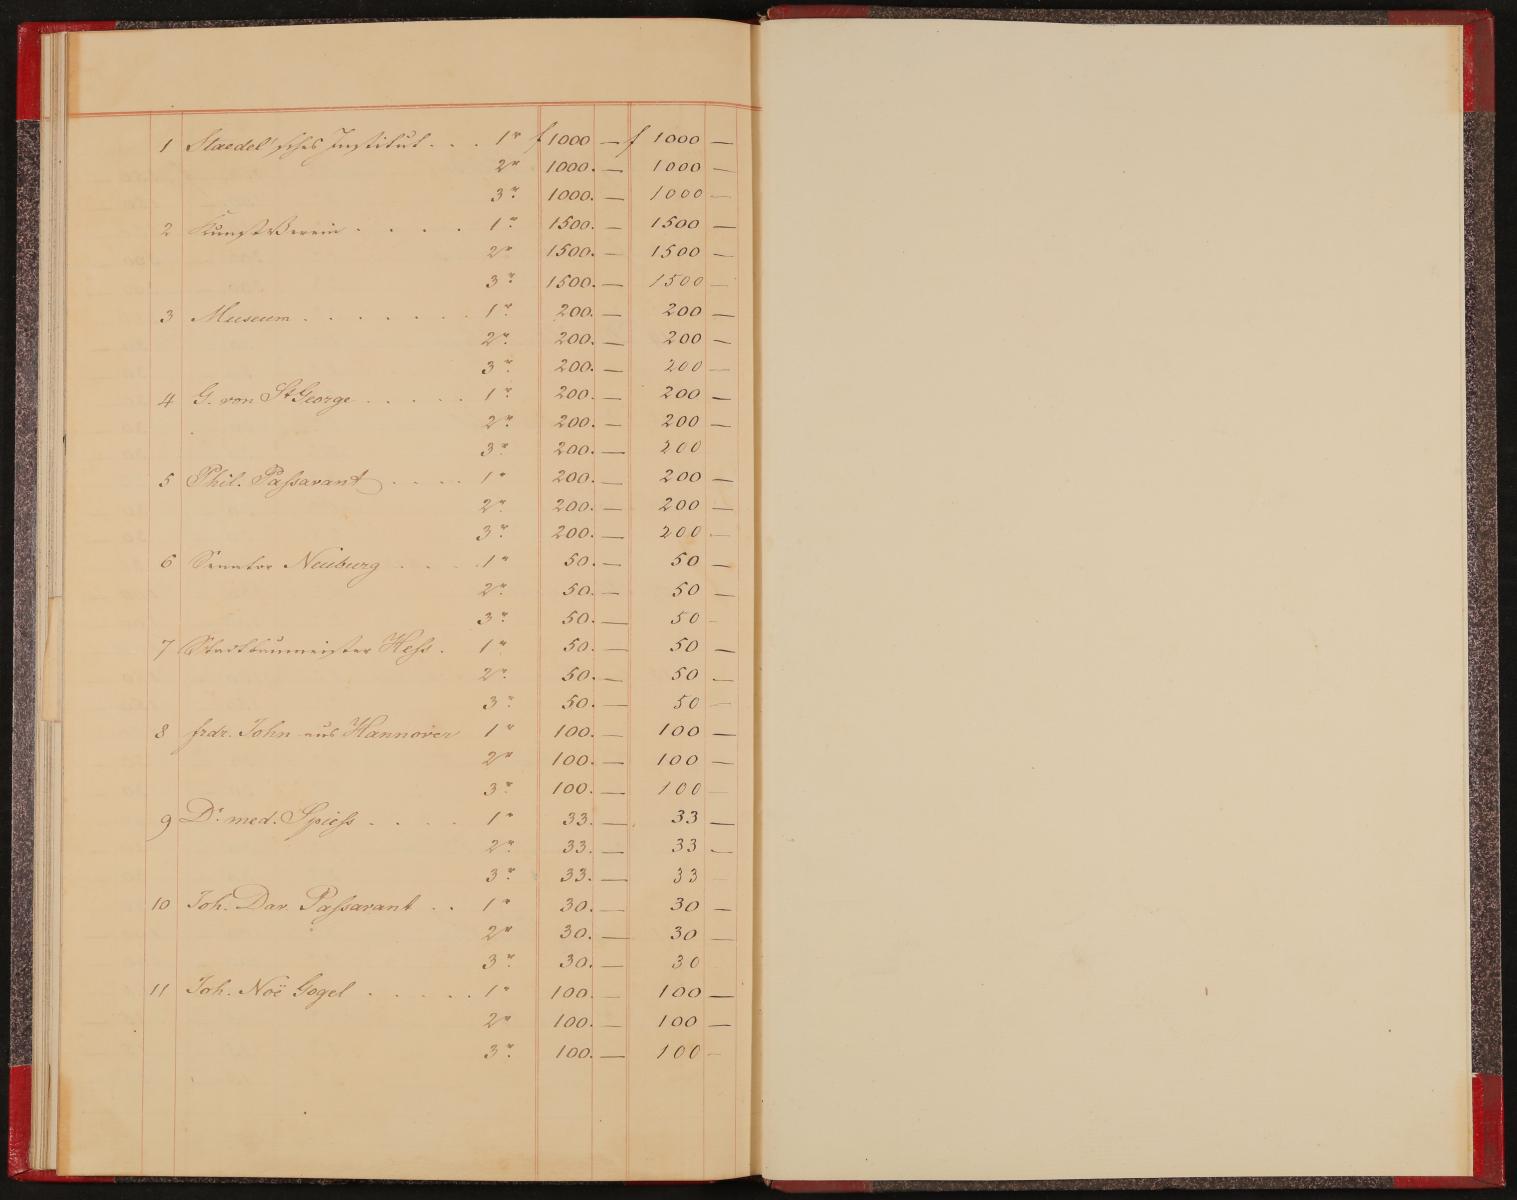 1 Staedel'sches Institut . . . 1r f 1000 — f 1000 —
2r 1000. — 1000 —
3r. 1000. — 1000 —
2 Kunst Verein . . . . 1r. 1500. — 1500 —
2r 1500. — 1500 —
3r. 1500. — 1500 —
3 Museum . . . . . . . 1r. 200. — 200 —
2r. 200. — 200 —
3r. 200. — 200 —
4 G. von St George . . . . . 1r. 200. — 200 —
2r. 200. — 200 —
3r. 200. — 200
5 Phil. Passavant . . . . 1r 200. — 200 —
2r. 200. — 200 —
3r. 200. — 200 —
6 Senator Neuburg . . . 1r 50. — 50 —
2r. 50. — 50 —
3r. 50. — 50 —
7 Stadtbaumeister Hess . 1r. 50. — 50 —
2r. 50. — 50 —
3r. 50. — 50 —
8 frdr. John aus Hannover 1r 100. — 100 —
2r 100. — 100 —
3r. 100. — 100 —
9 Dr. med. Spiess . . . . 1r 33. — 33 —
2r. 33. — 33 —
3r. 33. — 33 —
10 Joh. Dav. Passavant . . 1r 30. — 30 —
2r 30. — 30 —
3r. 30. — 30
11 Joh. Noë Gogel . . . . . 1r 100. — 100 —
2r 100. — 100 —
3r. 100. — 100 —